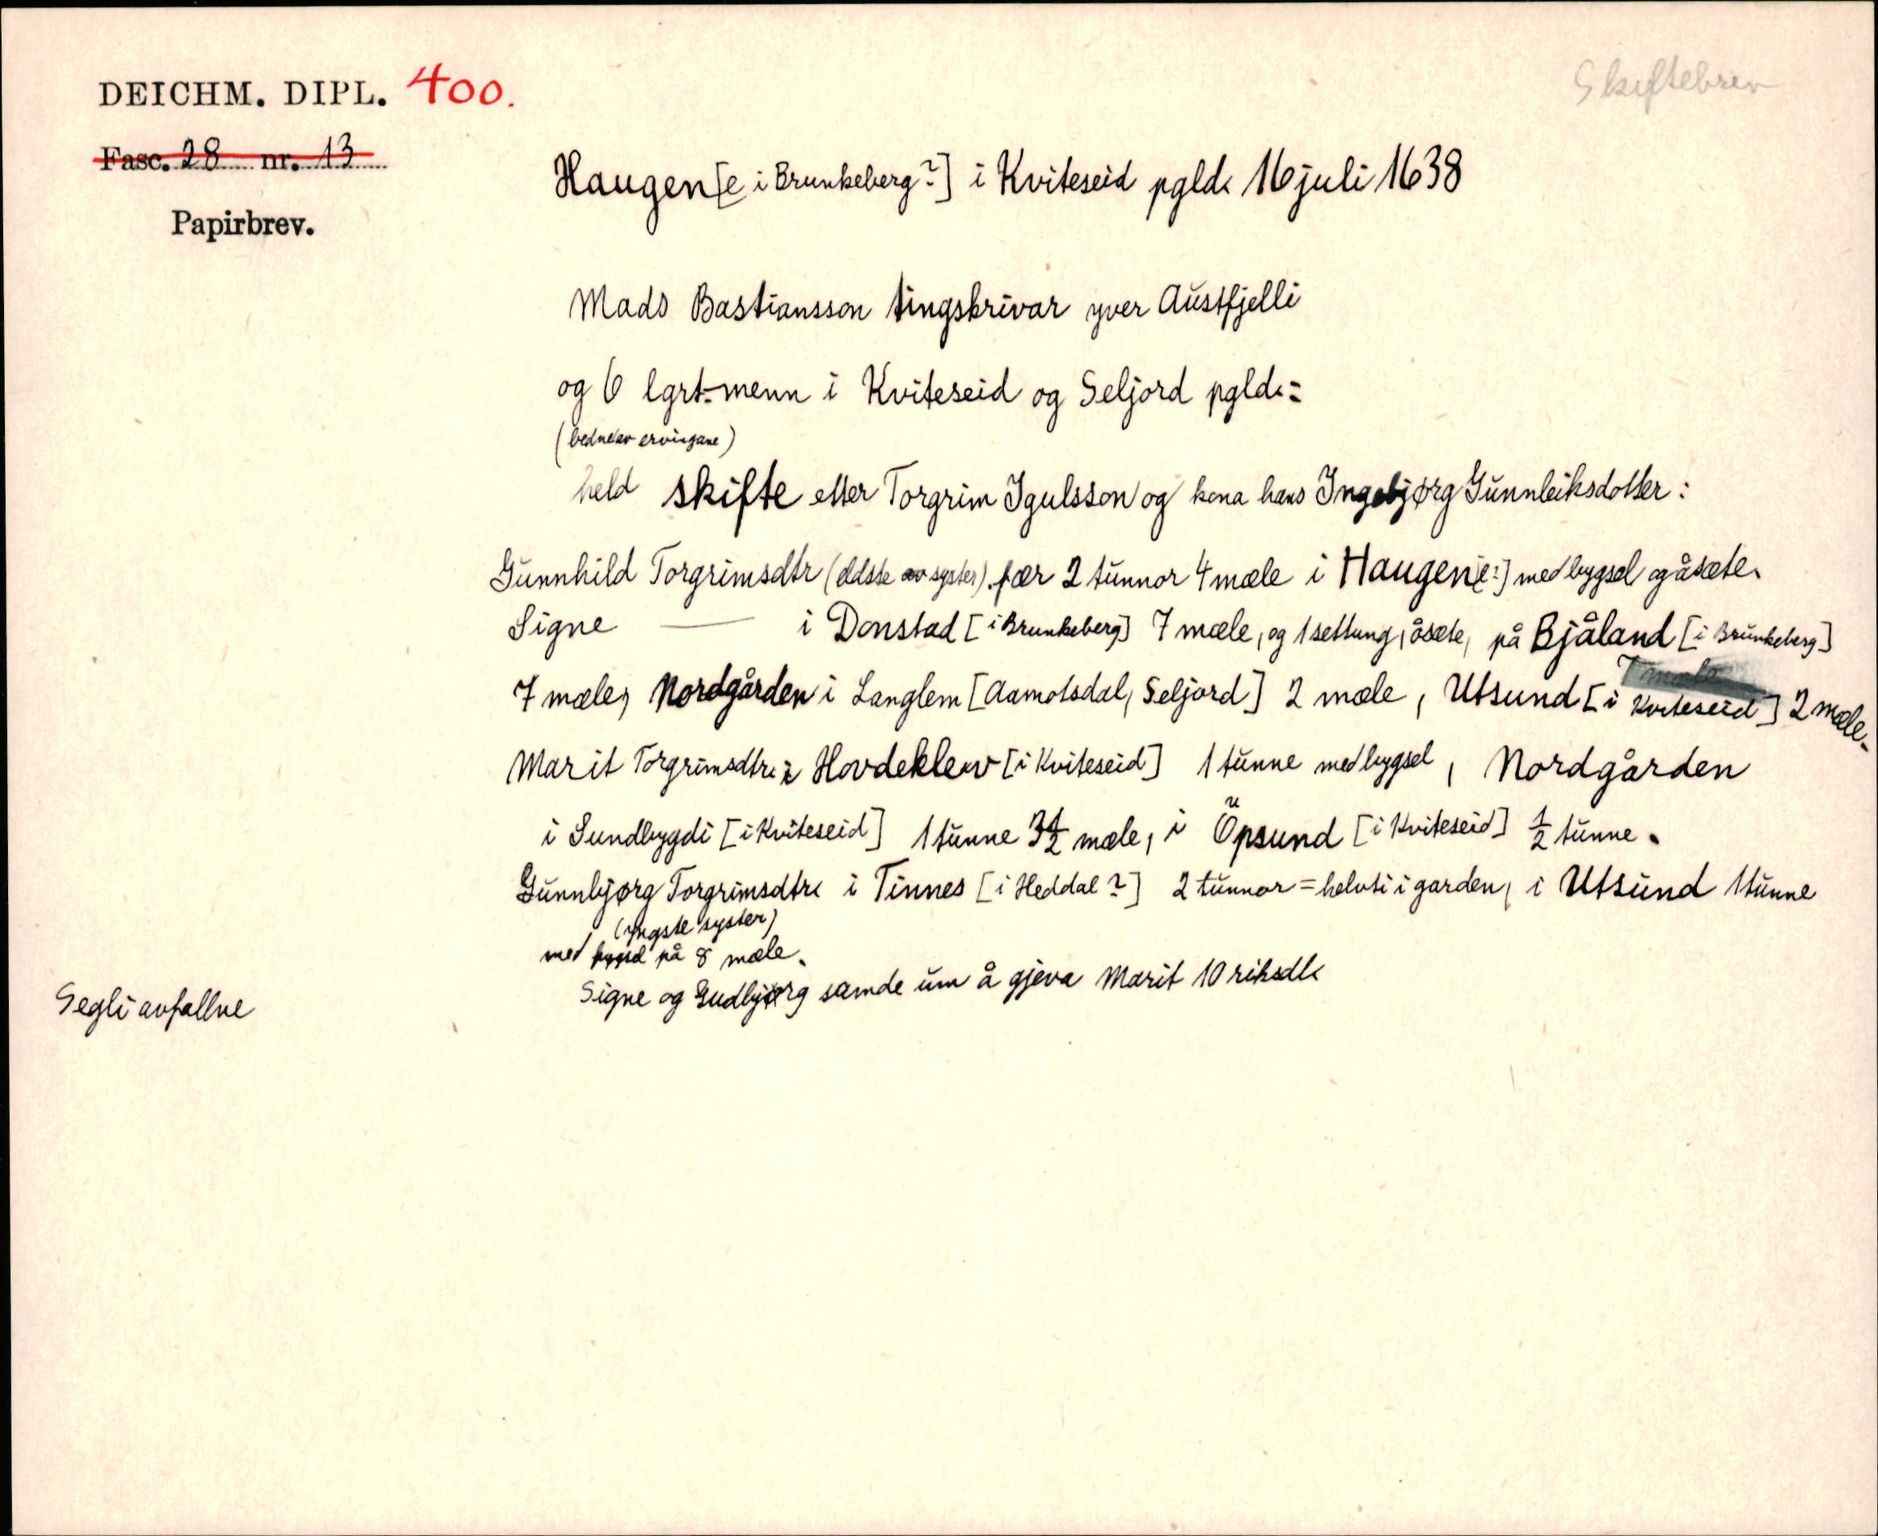 DEICHM. DIPL. 400.
Skiftebrev
Fasc. 28 nr. 13
Papirbrev.
Haugen[e i Brunkeberg?] i Kviteseid pgld. 16 juli 1638
Mads Bastiansson tingskrivar yver Austfjelli
og 6 lgrt-menn i Kviteseid og Seljord pgld.:
(bedne av ervingane)
held skifte etter Torgrim Igulsson og kona hans Ingebjørg Gunnleiksdotter:
Gunnhild Torgrimsdtr (eldste syster) fær 2 tunnor 4 mæle i Haugen[e?] med bygsel og åsæte.
Signe — i Donstad [i Brunkeberg] 7 mæle, og 1 settung, åsæte, på Bjåland [i Brunkeberg]
7 mæle, Nordgården i Langlem [Aamotsdal, Seljord] 2 mæle, Utsund [i Kviteseid] 2 mæle.
Marit Torgrimsdtr. i Hovdeklev [i Kviteseid] 1 tunne med bygsel, Nordgården
i Sundbygdi [i Kviteseid] 1 tunne 3½ mæle, i Öpsund [i Kviteseid] ½ tunne.
Gunnbjørg Torgrimsdtr. i Tinnes [i Heddal?] 2 tunnor = helvti i garden, i Utsund 1 tunne
(yngste syster)
med bygsel på 8 mæle.
Signe og Gudbjørg samde um å gjeva Marit 10 riksdl.
Segli avfallne